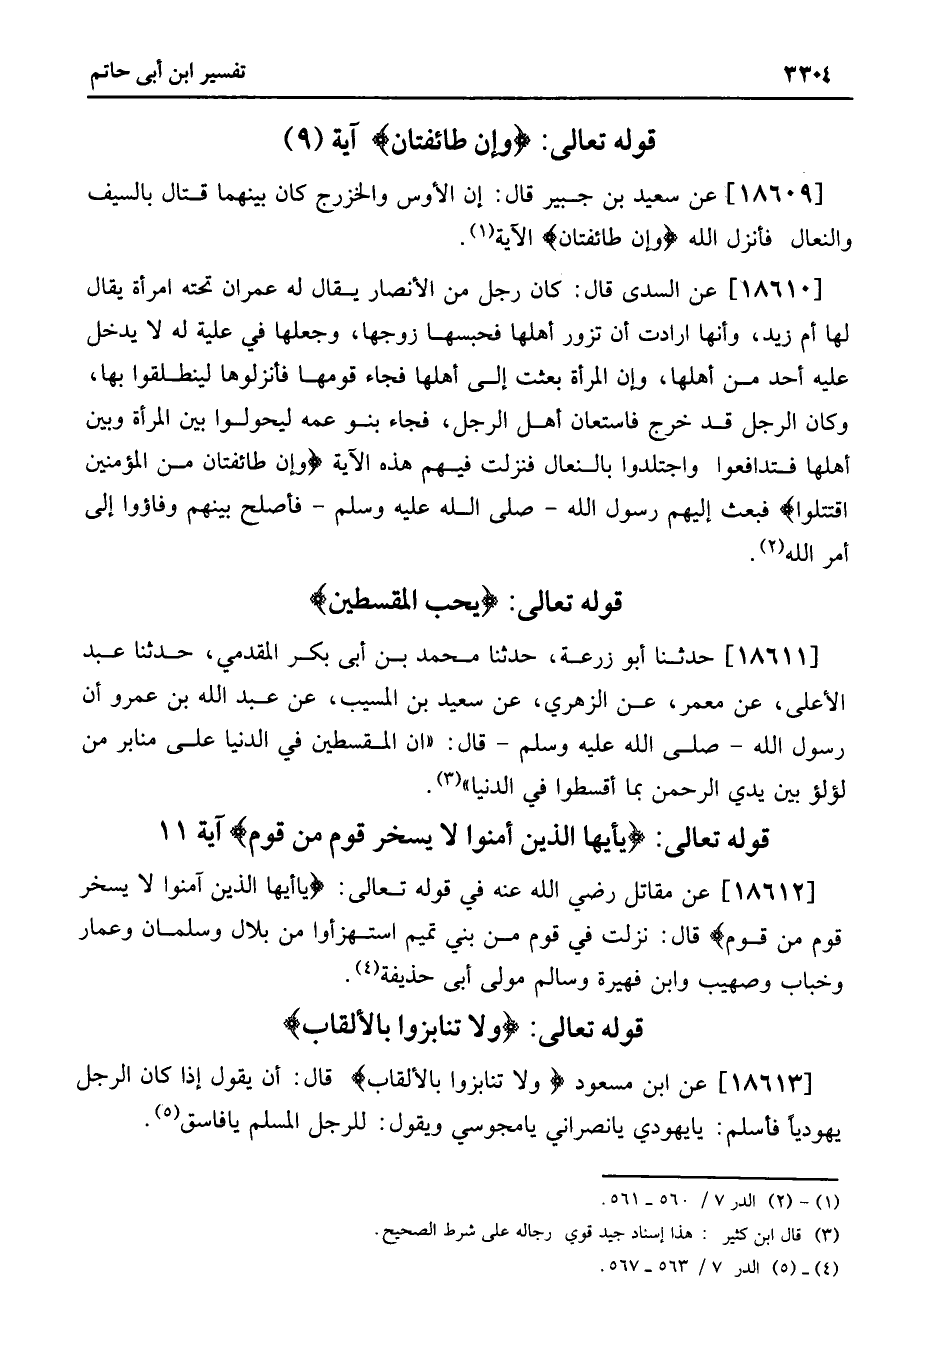 ٣٣٠٤ تفسير ابن أبى حاتم
قوله تعالى: ﴿وإن طائفتان﴾ آية (٩)
[١٨٦٠٩] عن سعيد بن جبير قال: إن الأوس والخزرج كان بينهما قتال بالسيف
والنعال فأنزل الله ﴿وإن طائفتان﴾ الآية(١).
[١٨٦١٠] عن السدى قال: كان رجل من الأنصار يقال له عمران تحته امرأة يقال
لها أم زيد، وأنها ارادت أن تزور أهلها فحبسها زوجها، وجعلها في علية له لا يدخل
عليه أحد من أهلها، وإن المرأة بعثت إلى أهلها فجاء قومها فأنزلوها لينطلقوا بها،
وكان الرجل قد خرج فاستعان أهل الرجل، فجاء بنو عمه ليحولوا بين المرأة وبين
أهلها فتدافعوا واجتلدوا بالنعال فنزلت فيهم هذه الآية ﴿وإن طائفتان من المؤمنين
اقتتلوا﴾ فبعث إليهم رسول الله - صلى الله عليه وسلم - فأصلح بينهم وفاؤوا إلى
أمر الله(٢).
قوله تعالى: ﴿يحب المقسطين﴾
[١٨٦١١] حدثنا أبو زرعة، حدثنا محمد بن أبى بكر المقدمي، حدثنا عبد
الأعلى، عن معمر، عن الزهري، عن سعيد بن المسيب، عن عبد الله بن عمرو أن
رسول الله - صلى الله عليه وسلم - قال: «ان المقسطين في الدنيا على منابر من
لؤلؤ بين يدي الرحمن بما أقسطوا في الدنيا»(٣).
قوله تعالى: ﴿يأيها الذين أمنوا لا يسخر قوم من قوم﴾ آية ١١
[١٨٦١٢] عن مقاتل رضي الله عنه في قوله تعالى: ﴿ياأيها الذين آمنوا لا يسخر
قوم من قوم﴾ قال: نزلت في قوم من بني تميم استهزأوا من بلال وسلمان وعمار
وخباب وصهيب وابن فهيرة وسالم مولى أبى حذيفة(٤).
قوله تعالى: ﴿ولا تنابزوا بالألقاب﴾
[١٨٦١٣] عن ابن مسعود ﴿ولا تنابزوا بالألقاب﴾ قال: أن يقول إذا كان الرجل
يهودياً فأسلم: يايهودي يانصراني يامجوسي ويقول: للرجل المسلم يافاسق(٥).
(١) - (٢) الدر ٧ / ٥٦٠ ـ ٥٦١.
(٣) قال ابن كثير : هذا إسناد جيد قوي رجاله على شرط الصحيح.
(٤) ـ (٥) الدر ٧ / ٥٦٣ ـ ٥٦٧.